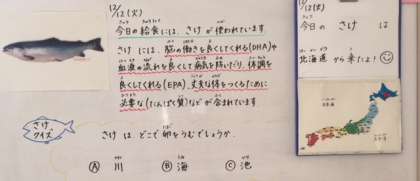 12/12(火)
今日の給食には、さけが使われています
さけには、脳の働きを良くしてくれる(DHA)や
血液の流れを良くして病気を防いだり、体調を
良くしてくれる(EPA)、丈夫な体をつくるために
必要な(たんぱく質)などが含まれています
さけクイズ
さけは、どこで卵をうむでしょうか。
Ⓐ川 Ⓑ海 Ⓒ池
12/12(火)
今日のさけは
北海道から来たよ!